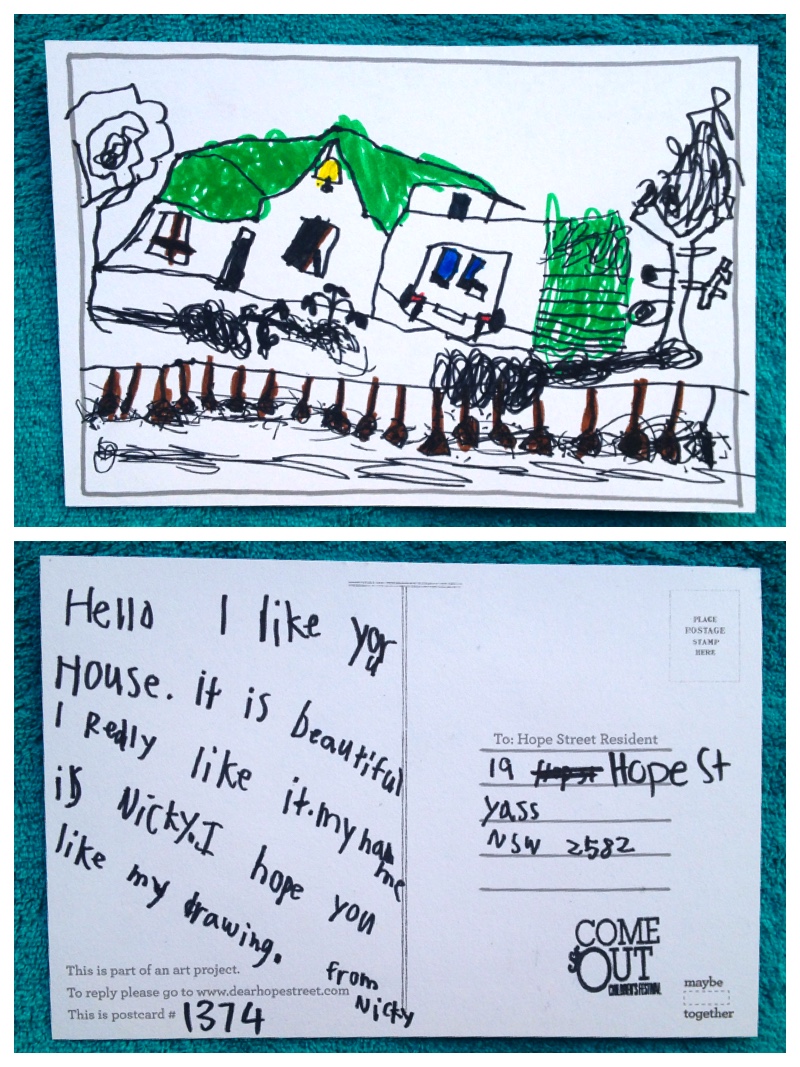 Hello I like your
House. it is beautiful
I Really like it. my name
is Nicky. I hope you
like my drawing.
from
Nicky
This is part of an art project.
To reply please go to www.dearhopestreet.com
This is postcard # 1374
PLACE
POSTAGE
STAMP
HERE
To: Hope Street Resident
19 Hope St
yass
NSW 2582
COME
OUT
CHILDREN'S FESTIVAL
maybe
together